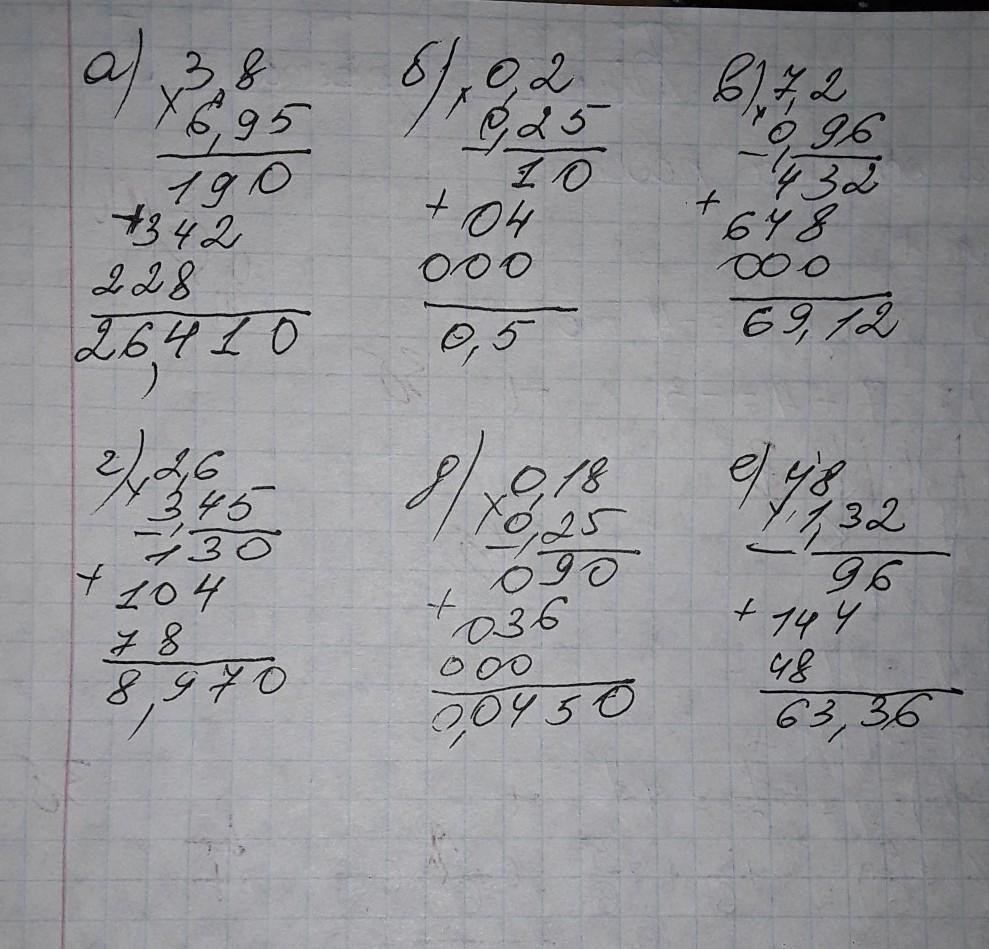 а) 3,8
× 6,95
190
+342
228
26,410
б) 0,2
× 0,25
10
+ 04
000
0,5
в) 7,2
× 0,96
432
+ 648
000
69,12
г) 2,6
× 3,45
130
+ 104
78
8,970
д) 0,18
× 0,25
090
+ 036
000
0,0450
е) 48
× 1,32
96
+ 144
48
63,36